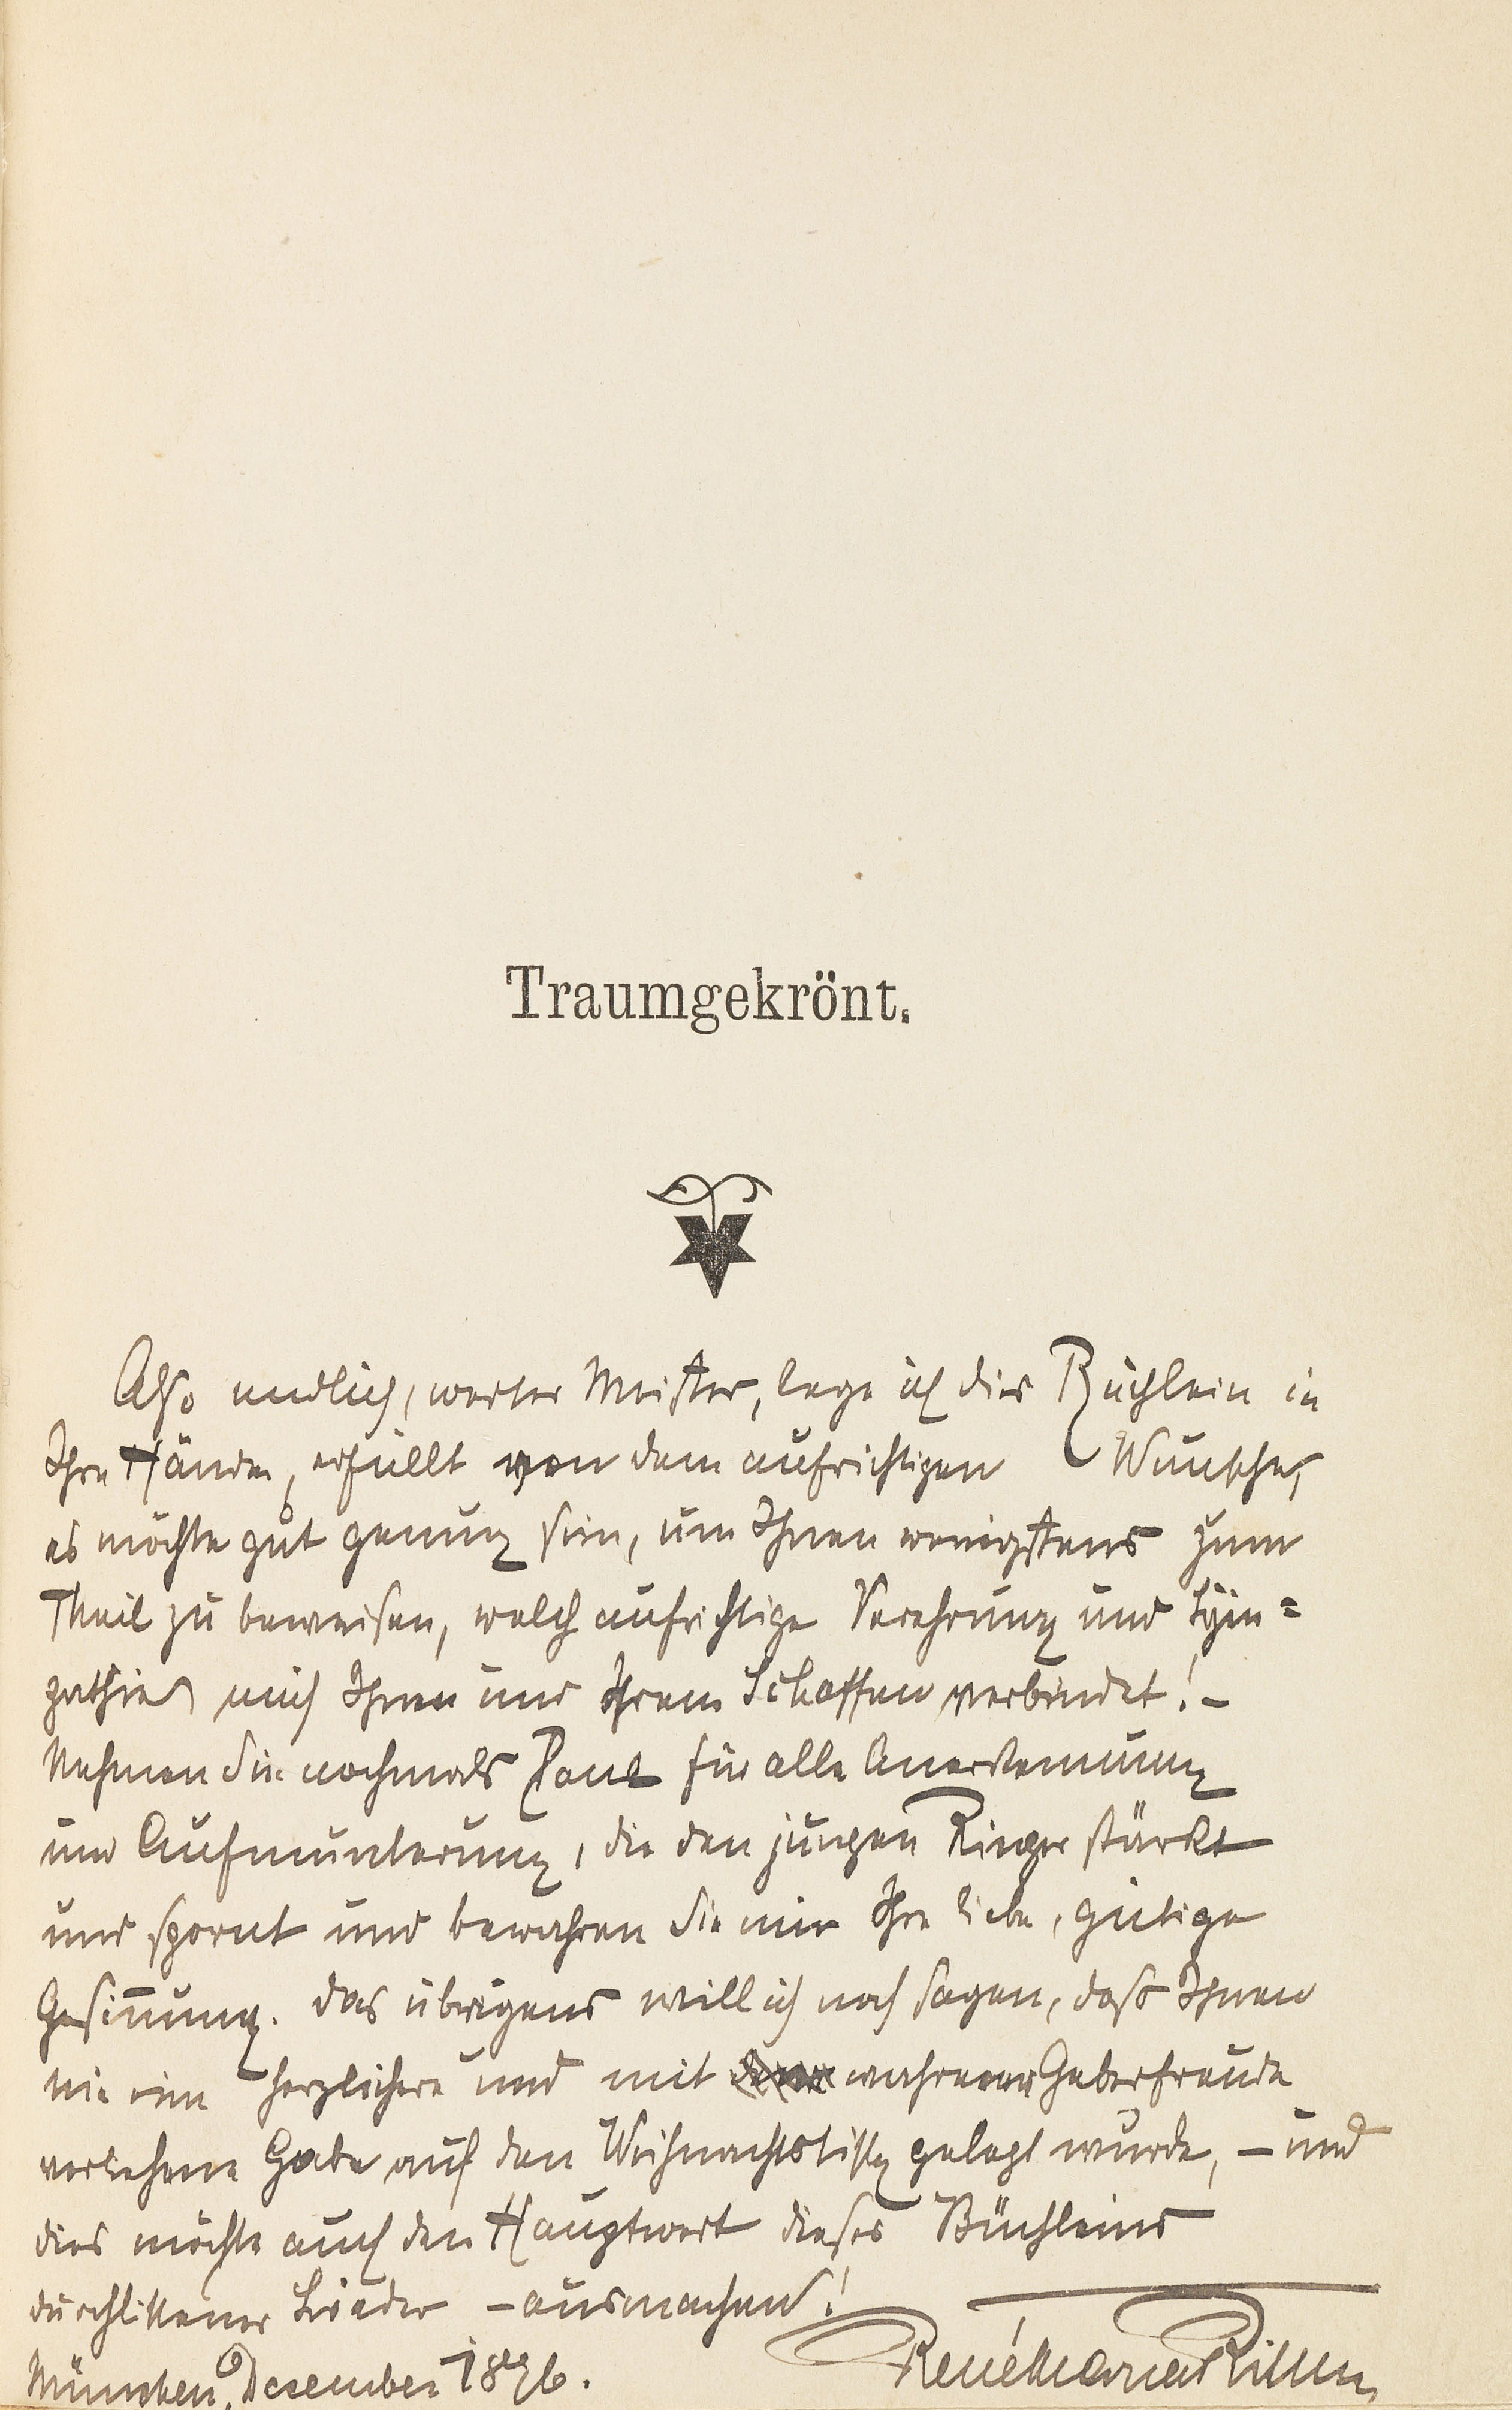 Traumgekrönt.
Also endlich, werter Meister, lege ich dies Büchlein in
Ihre Hände, erfüllt von dem aufrichtigen Wunsche,
es möchte gut genung sein, um Ihnen wenigstens zum
Theil zu beweisen, welch aufrichtige Verehrung und Sym=
pathie mich Ihnen und Ihrem Schaffen verbindet! –
Nehmen Sie nochmals Dank für alle Anerkennung
und Aufmunterung, die den jungen Ringer stärkt
und spornt und bewahren Sie mir Ihre liebe, gütige
Gesinnung. Das übrigens will ich noch sagen, dass Ihnen
nie eine herzlichere und mit wahrerer Geberfreude
verliehene Gabe auf den Weihnachtstisch gelegt wurde, – und
dies möchte auch den Hauptwert dieses Büchleins
durchlittener Lieder – ausmachen!
München, Dezember 1896. René Maria Rilke